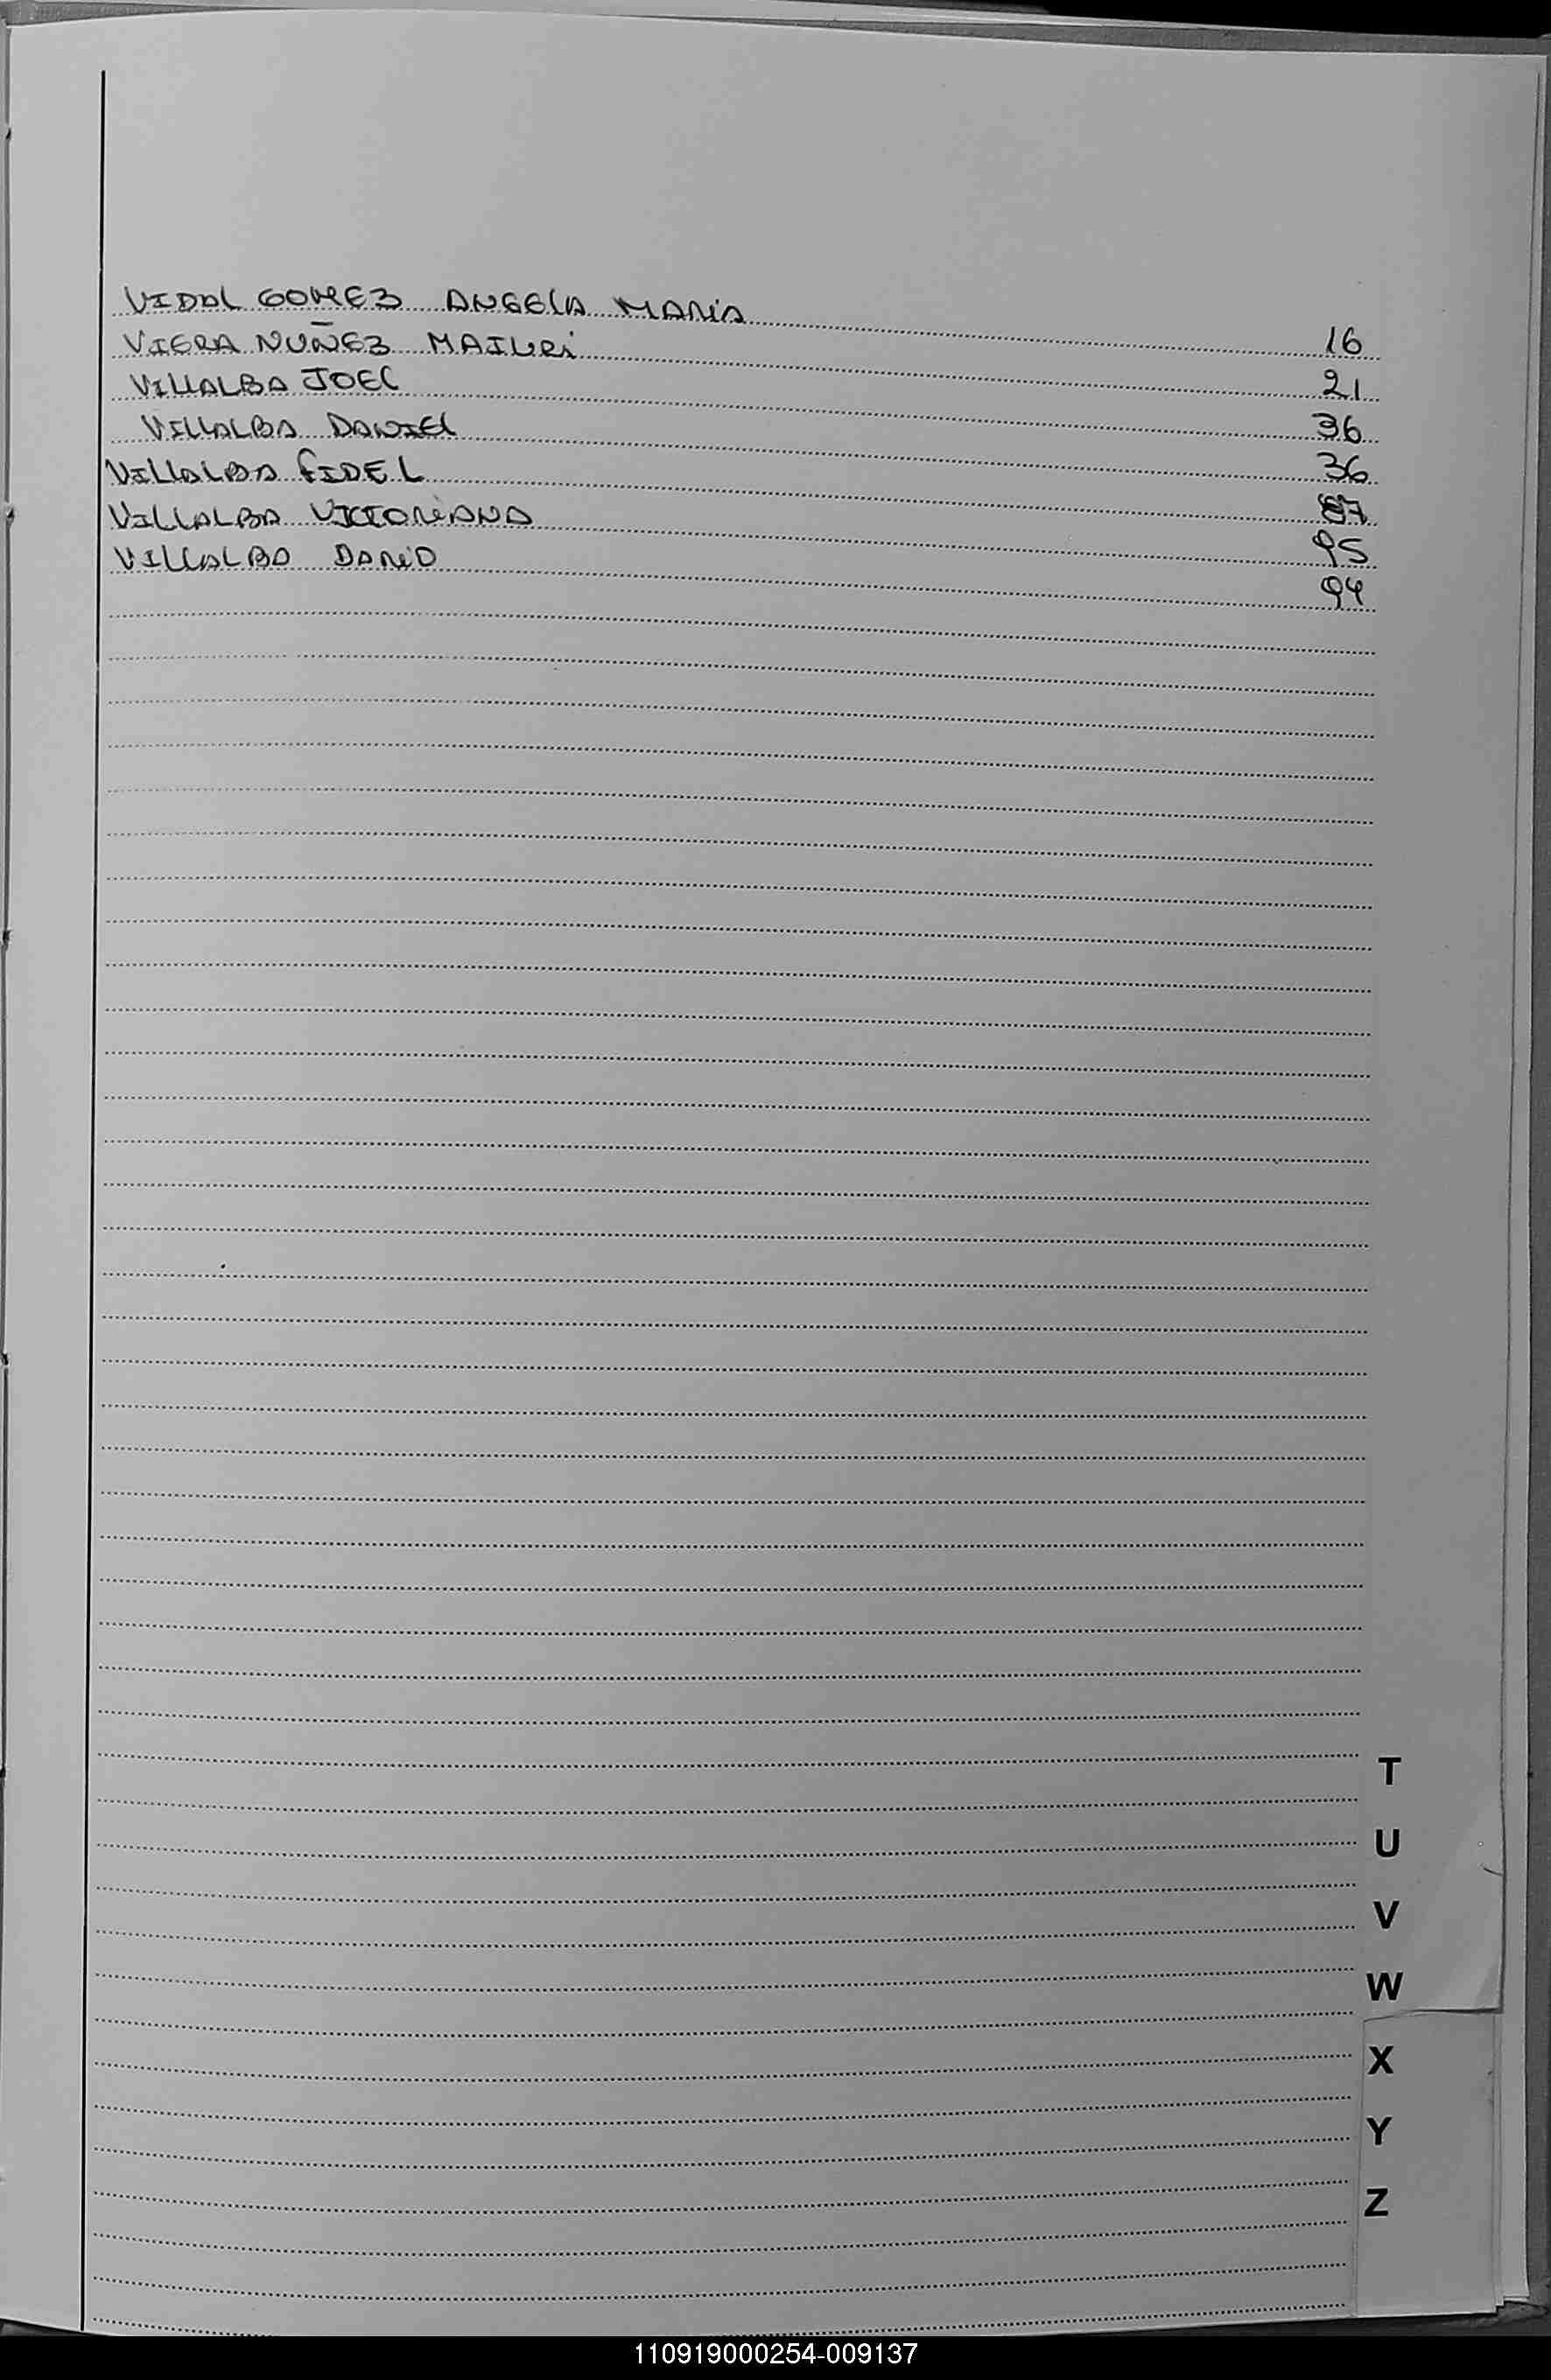 VIDAL GOMEZ ANGELA MARIA 16
VIERA NUÑEZ MAIURI 21
VILLALBA JOEL 36
VILLALBA DANIEL 36
VILLALBA FIDEL 87
VILLALBA VICTORIANA 95
VILLALBA DARIO 94
T
U
V
W
X
Y
Z
110919000254-009137